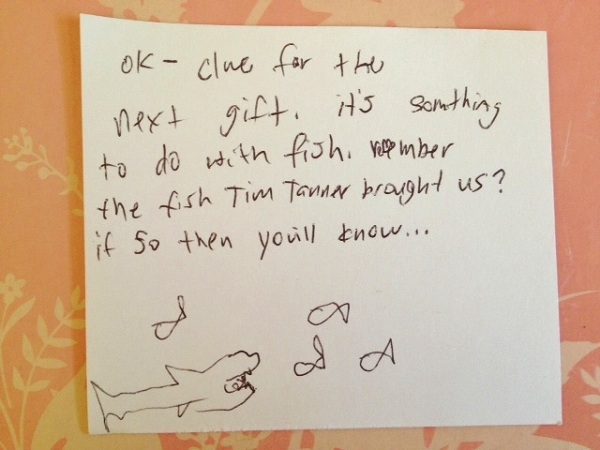 OK - clue for the
next gift. it's somthing
to do with fish. remember
the fish Tim Tanner brought us?
if so then you'll know...